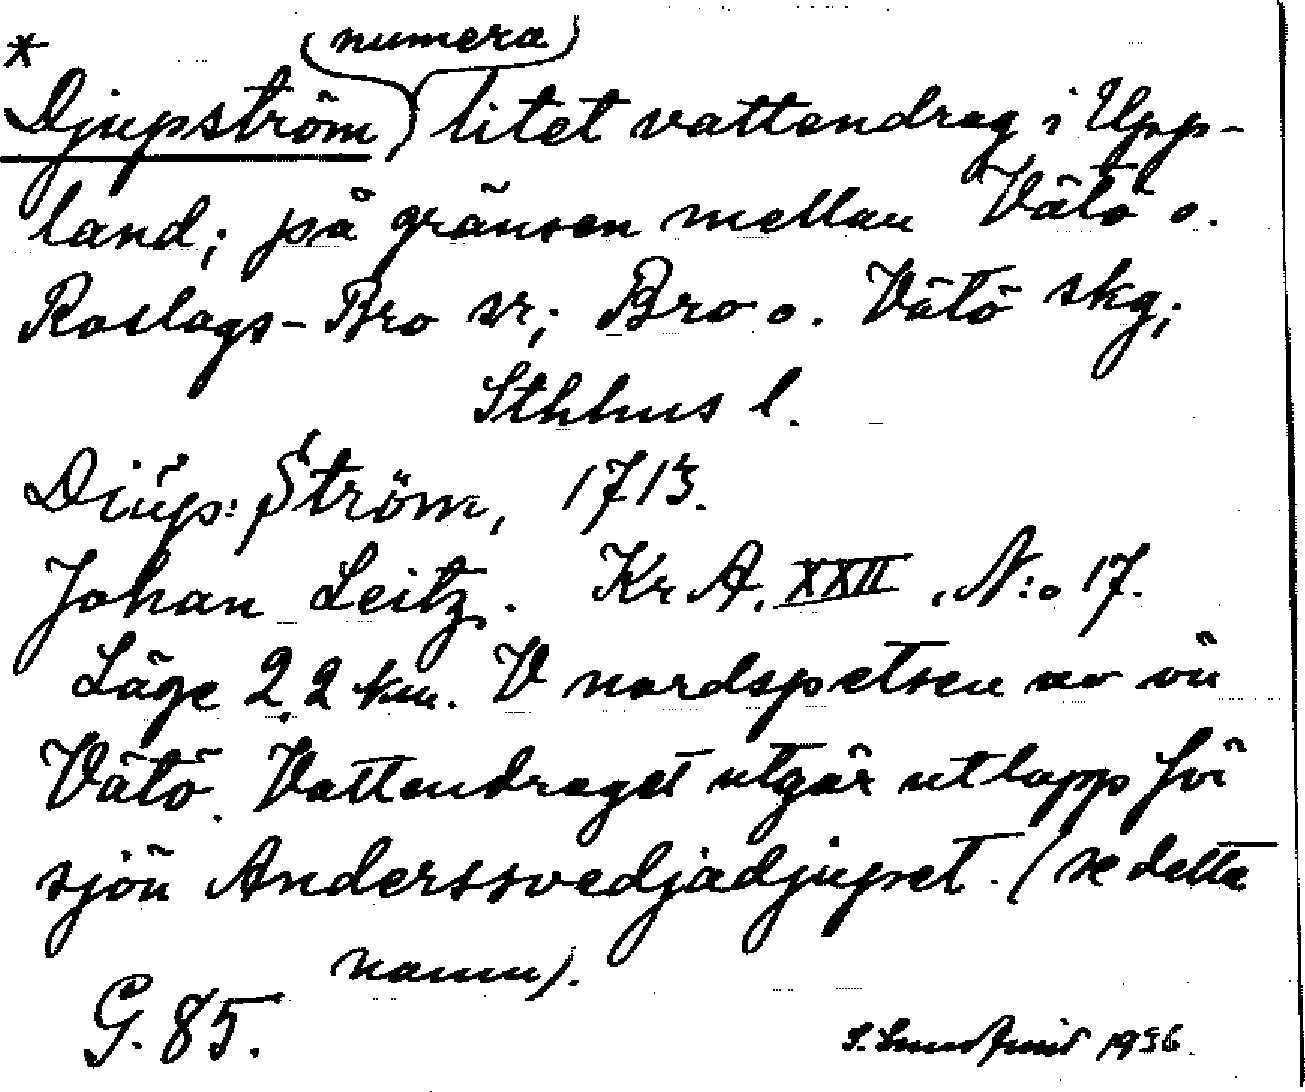 * (numera)
Djupström) litet vattendrag i Upp-
land; på gränsen mellan Vätö o.
Roslags-Bro sr; Bro o. Vätö skg;
Sthlms l.
Diŭp: Ström, 1713.
Johan Leitz. Kr A. XXII. N:o 17.
Läge 2,2 km. V nordspetsen av ön
Vätö. Vattendraget utgör utlopp för
sjön Anderssvedjadjupet. (se detta
namn).
G. 85.
1936.